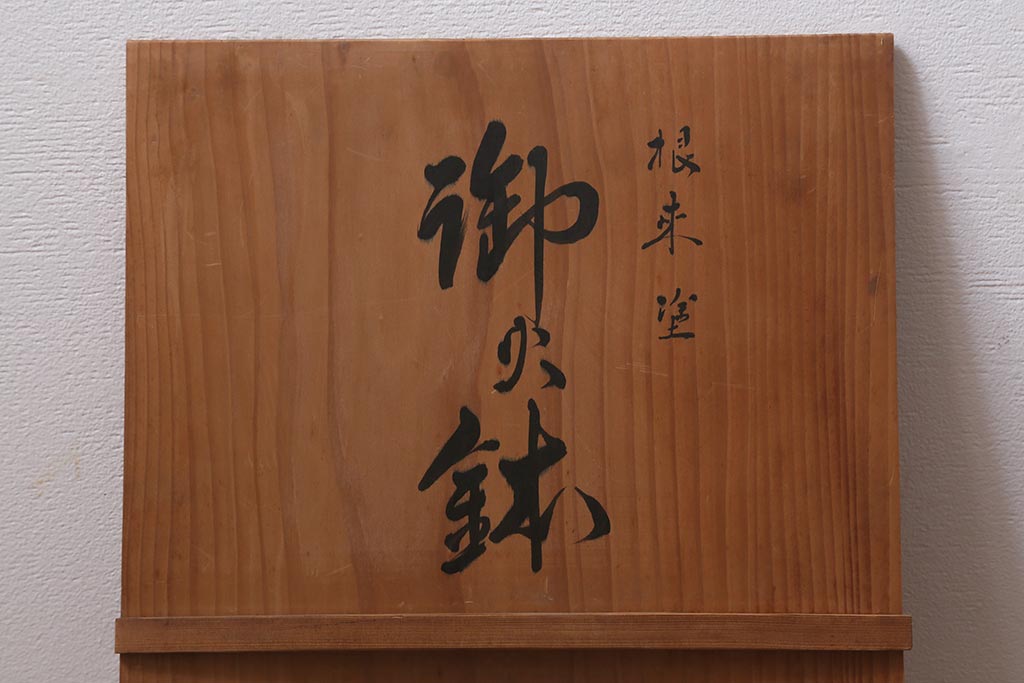 根来塗
御火鉢